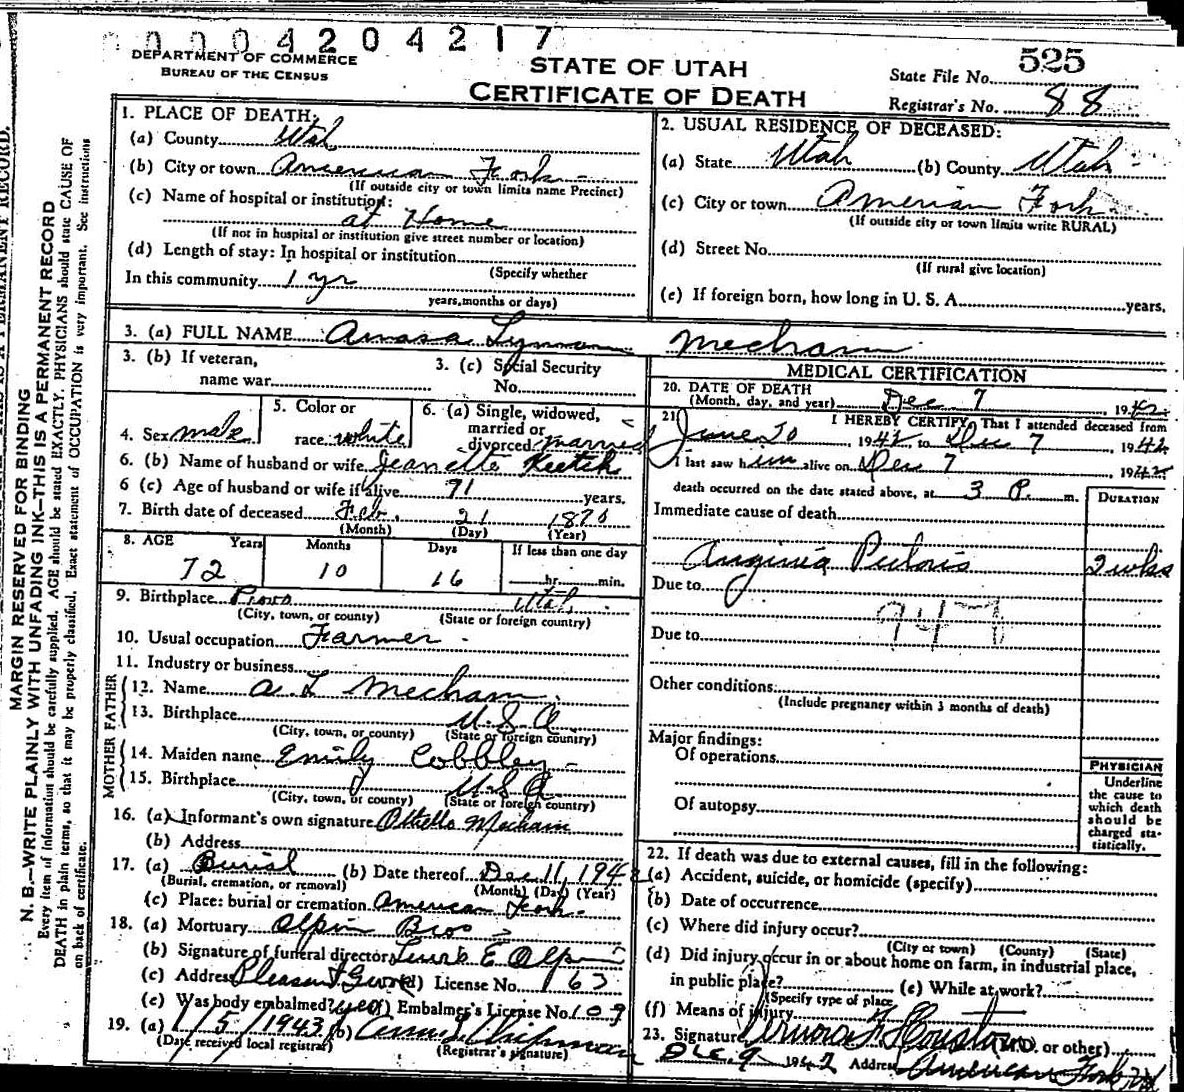 0004204217
DEPARTMENT OF COMMERCE
BUREAU OF THE CENSUS
STATE OF UTAH
CERTIFICATE OF DEATH
State File No. 525
Registrar's No. 88
MARGIN RESERVED FOR BINDING
N. B.—WRITE PLAINLY WITH UNFADING INK—THIS IS A PERMANENT RECORD
Every item of information should be carefully supplied. AGE should be stated EXACTLY. PHYSICIANS should state CAUSE OF
DEATH in plain terms, so that it may be properly classified. Exact statement of OCCUPATION is very important. See instructions
on back of certificate.
1. PLACE OF DEATH:
(a) County Utah
(b) City or town American Fork
(If outside city or town limits name Precinct)
(c) Name of hospital or institution:
at Home
(If not in hospital or institution give street number or location)
(d) Length of stay: In hospital or institution
(Specify whether
In this community 1 yr
years, months or days)
2. USUAL RESIDENCE OF DECEASED:
(a) State Utah (b) County Utah
(c) City or town American Fork
(If outside city or town limits write RURAL)
(d) Street No.
(If rural give location)
(e) If foreign born, how long in U. S. A. years.
3. (a) FULL NAME Amasa Lyman Mecham
3. (b) If veteran,
name war
3. (c) Social Security
No.
4. Sex male
5. Color or
race white
6. (a) Single, widowed,
married or
divorced married
6. (b) Name of husband or wife Jeanette Keetch
6 (c) Age of husband or wife if alive 71 years.
7. Birth date of deceased Feb. 21 1870
(Month) (Day) (Year)
8. AGE Years Months Days If less than one day
72 10 16 hr. min.
9. Birthplace Provo Utah
(City, town, or county) (State or foreign country)
10. Usual occupation Farmer
11. Industry or business
FATHER
12. Name A. L Mecham
13. Birthplace U. S. A
(City, town, or county) (State or foreign country)
MOTHER
14. Maiden name Emily Cobbley
15. Birthplace U. S. A.
(City, town, or county) (State or foreign country)
16. (a) Informant's own signature Othello Mecham
(b) Address
17. (a) Burial (b) Date thereof Dec 11, 1942
(Burial, cremation, or removal) (Month) (Day) (Year)
(c) Place: burial or cremation American Fork
18. (a) Mortuary Olpin Bros
(b) Signature of funeral director E Olpin
(c) Address Pleasant Grove (d) License No. 163
(e) Was body embalmed? yes (f) Embalmer's License No. 109
19. (a) 1/5/1943 (b) Chipman
(Date received local registrar) (Registrar's signature)
MEDICAL CERTIFICATION
20. DATE OF DEATH
(Month, day, and year) Dec 7 1942
21. I HEREBY CERTIFY, That I attended deceased from
June 20, 1942, to Dec 7, 1942
I last saw him alive on Dec 7 1942
death occurred on the date stated above, at 3 P. m.
DURATION
Immediate cause of death
Anginia Pectoris 2 wks
Due to
947
Due to
Other conditions:
(Include pregnancy within 3 months of death)
Major findings:
Of operations
Of autopsy
PHYSICIAN
Underline
the cause to
which death
should be
charged sta-
tistically.
22. If death was due to external causes, fill in the following:
(a) Accident, suicide, or homicide (specify)
(b) Date of occurrence
(c) Where did injury occur?
(City or town) (County) (State)
(d) Did injury occur in or about home on farm, in industrial place,
in public place? (e) While at work?
(Specify type of place)
(f) Means of injury
23. Signature Vernon F Houston (M.D. or other)
Dec. 9 1942 Address American Fork